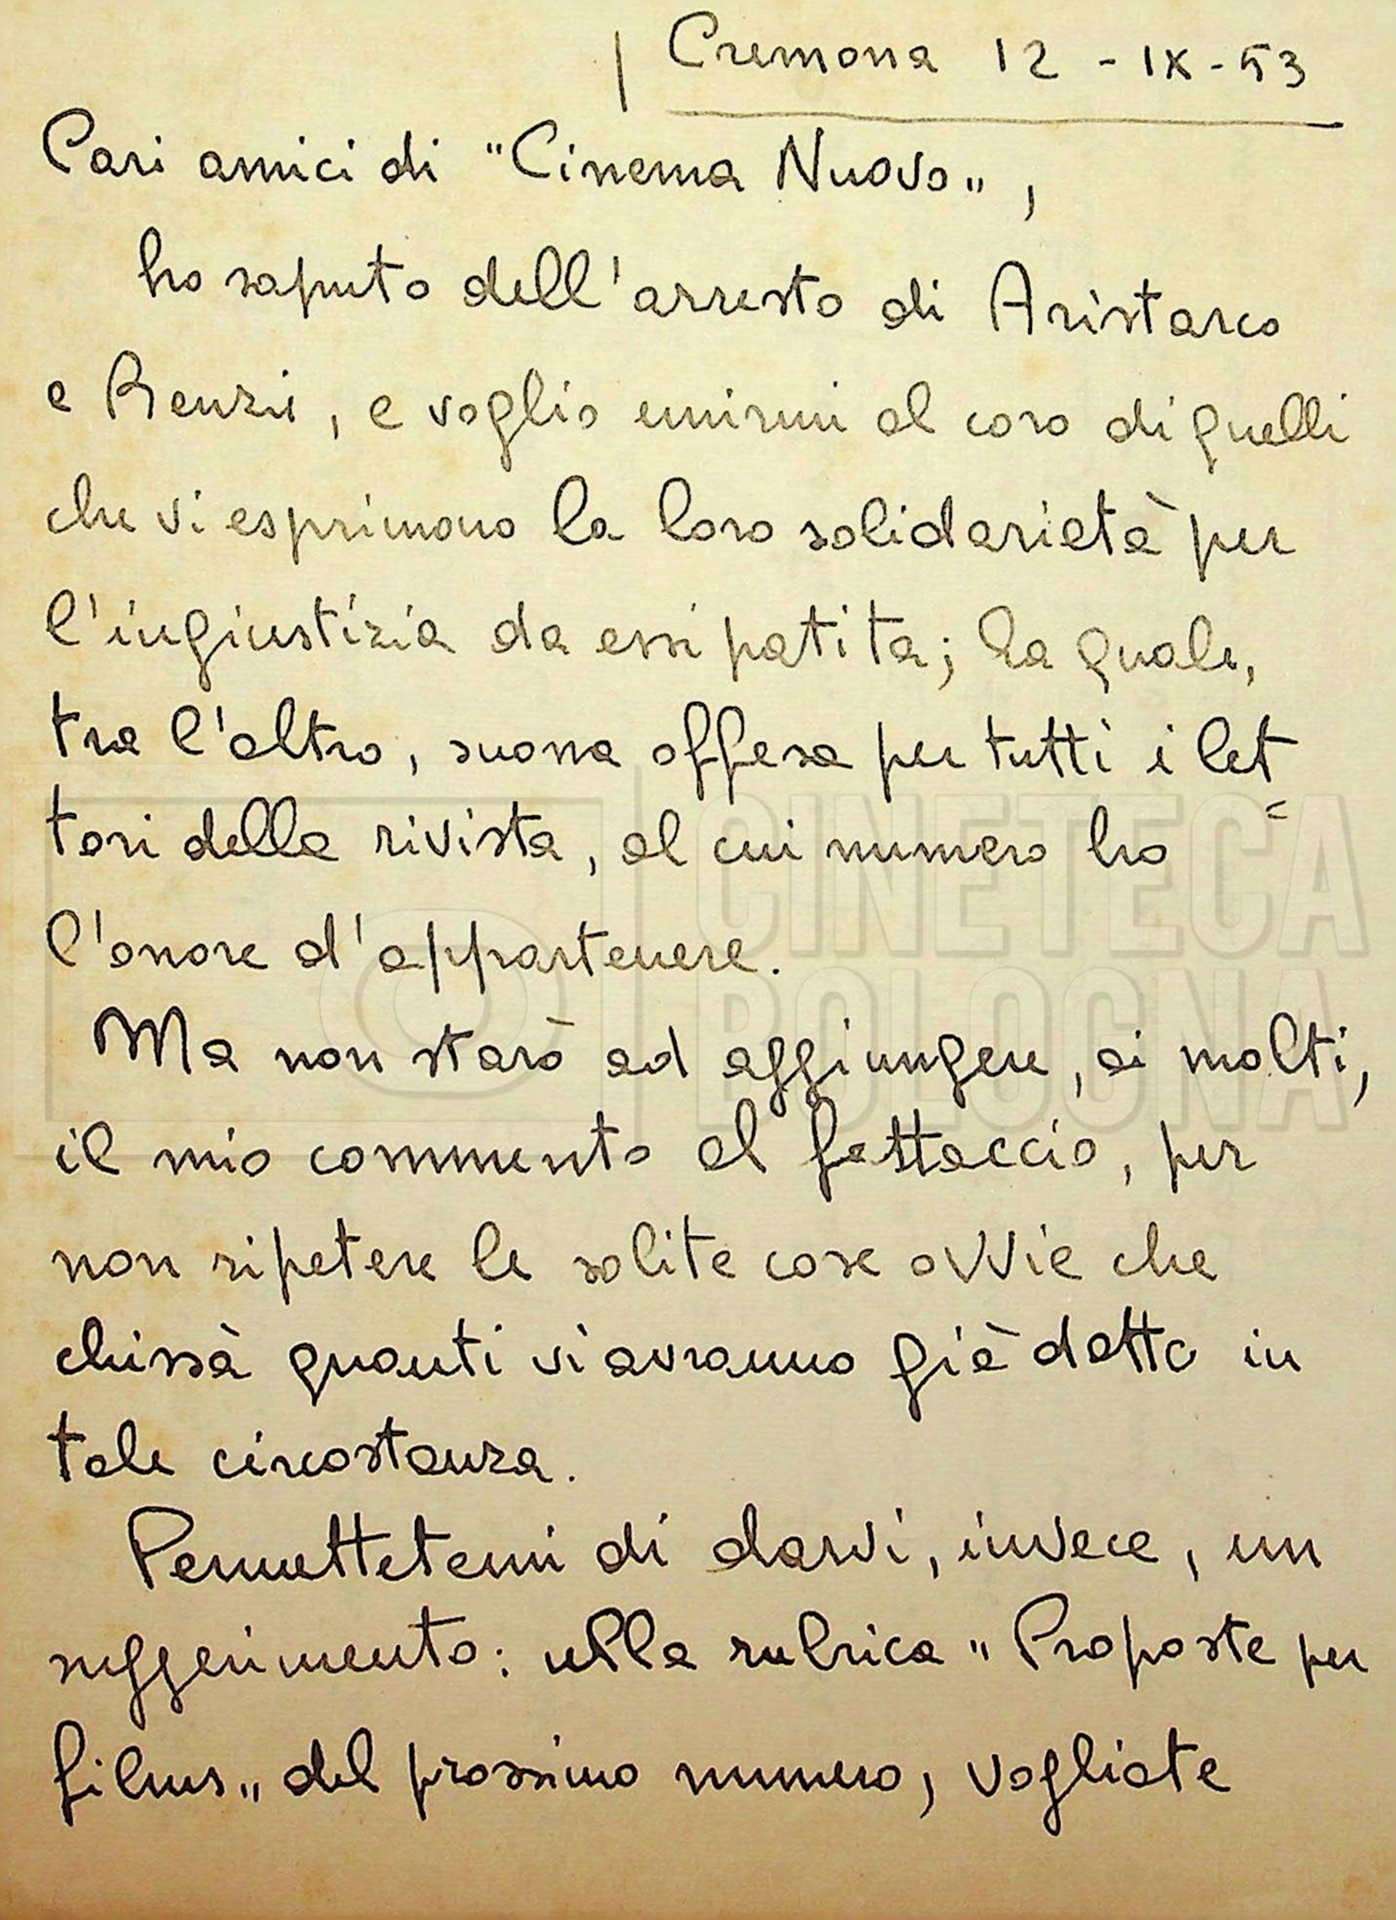 Cremona 12 - IX - 53
Cari amici di "Cinema Nuovo„,
ho saputo dell'arresto di Aristarco
e Renzi, e voglio unirmi al coro di quelli
che vi esprimono la loro solidarietà per
l'ingiustizia da essi patita; la quale,
tra l'altro, suona offesa per tutti i let=
tori della rivista, al cui numero ho
l'onore d'appartenere.
Ma non starò ad aggiungere, ai molti,
il mio commento al fattaccio, per
non ripetere le solite cose ovvie che
chissà quanti vi avranno già detto in
tale circostanza.
Permettetemi di darvi, invece, un
suggerimento: nella rubrica "Proposte per
films„ del prossimo numero, vogliate
CINETECA
BOLOGNA